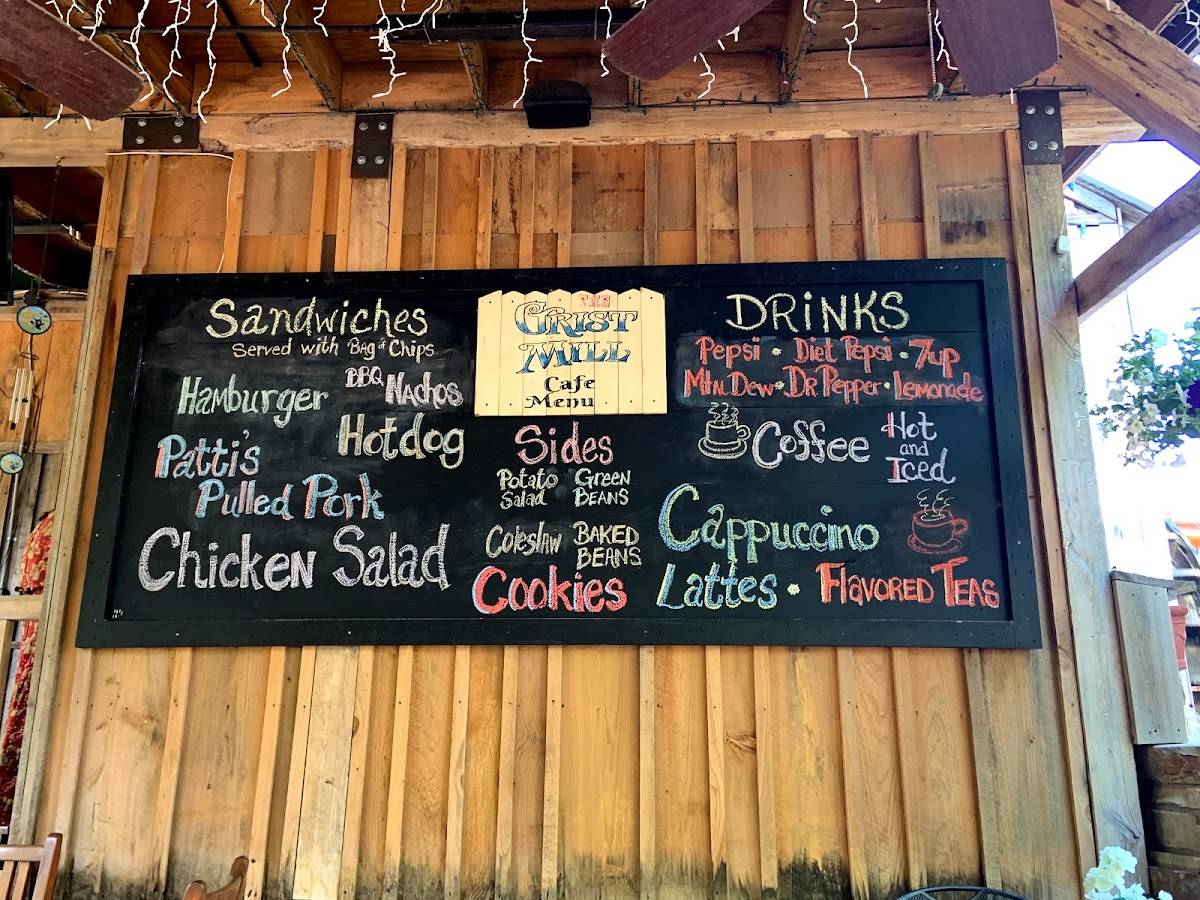 Sandwiches
Served with Bag of Chips
Hamburger
BBQ Nachos
Hotdog
Patti's
Pulled Pork
Chicken Salad
THE
GRIST
MILL
Cafe
Menu
Sides
Potato Salad
Green Beans
Coleslaw
BAKED BEANS
Cookies
DRiNKS
Pepsi • Diet Pepsi • 7up
Mtn. Dew • DR. Pepper • Lemonade
Coffee
Hot and Iced
Cappuccino
Lattes • Flavored Teas